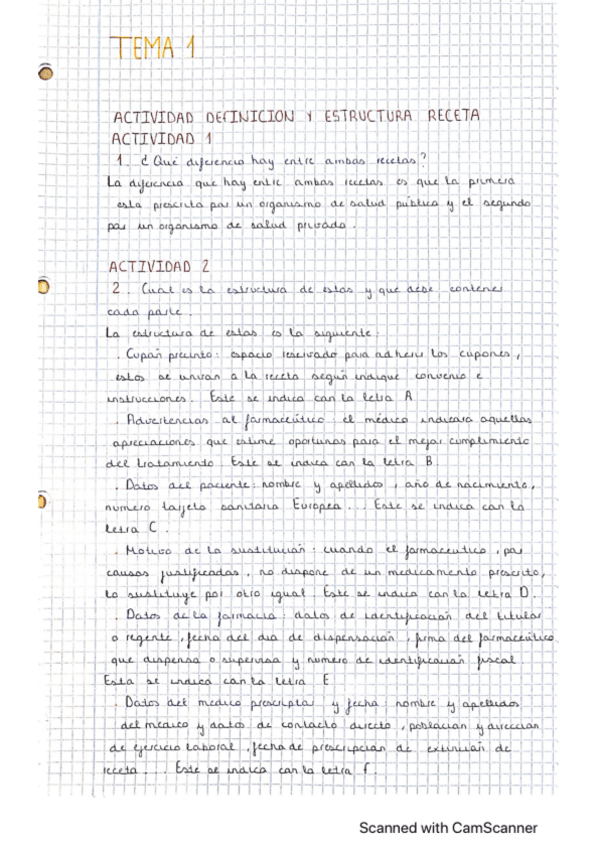 TEMA 1
ACTIVIDAD DEFINICION Y ESTRUCTURA RECETA
ACTIVIDAD 1
1. ¿Qué diferencia hay entre ambas recetas?
La diferencia que hay entre ambas recetas es que la primera
está prescrita por un organismo de salud público y el segundo
por un organismo de salud privado.
ACTIVIDAD 2
2. Cual es la estructura de estas y que debe contener
cada parte.
La estructura de estas es la siguiente:
. Cupón precinto: espacio reservado para adherir los cupones,
estos se unirán a la receta según indique convenio e
instrucciones. Este se indica con la letra A
. Advertencias al farmacéutico: el médico indicara aquellas
apreciaciones que estime oportunas para el mejor cumplimiento
del tratamiento. Este se indica con la letra B.
. Datos del paciente: nombre y apellidos, año de nacimiento,
numero tarjeta sanitaria Europea... Este se indica con la
letra C.
. Motivo de la sustitución: cuando el farmaceutico, por
causas justificadas, no dispone de un medicamento prescrito,
lo sustituye por otro igual. Este se indica con la letra D.
. Datos de la farmacia: datos de identificación del titular
o regente, fecha del dia de dispensación, firma del farmaceutico
que dispensa o supervisa y numero de identificación fiscal.
Esta se indica con la letra E
. Datos del medico prescriptor y fecha: nombre y apellidos
del medico y datos de contacto directo, población y dirección
de ejercicio laboral, fecha de prescripción de extinción de
receta... Este se indica con la letra f.
Scanned with CamScanner